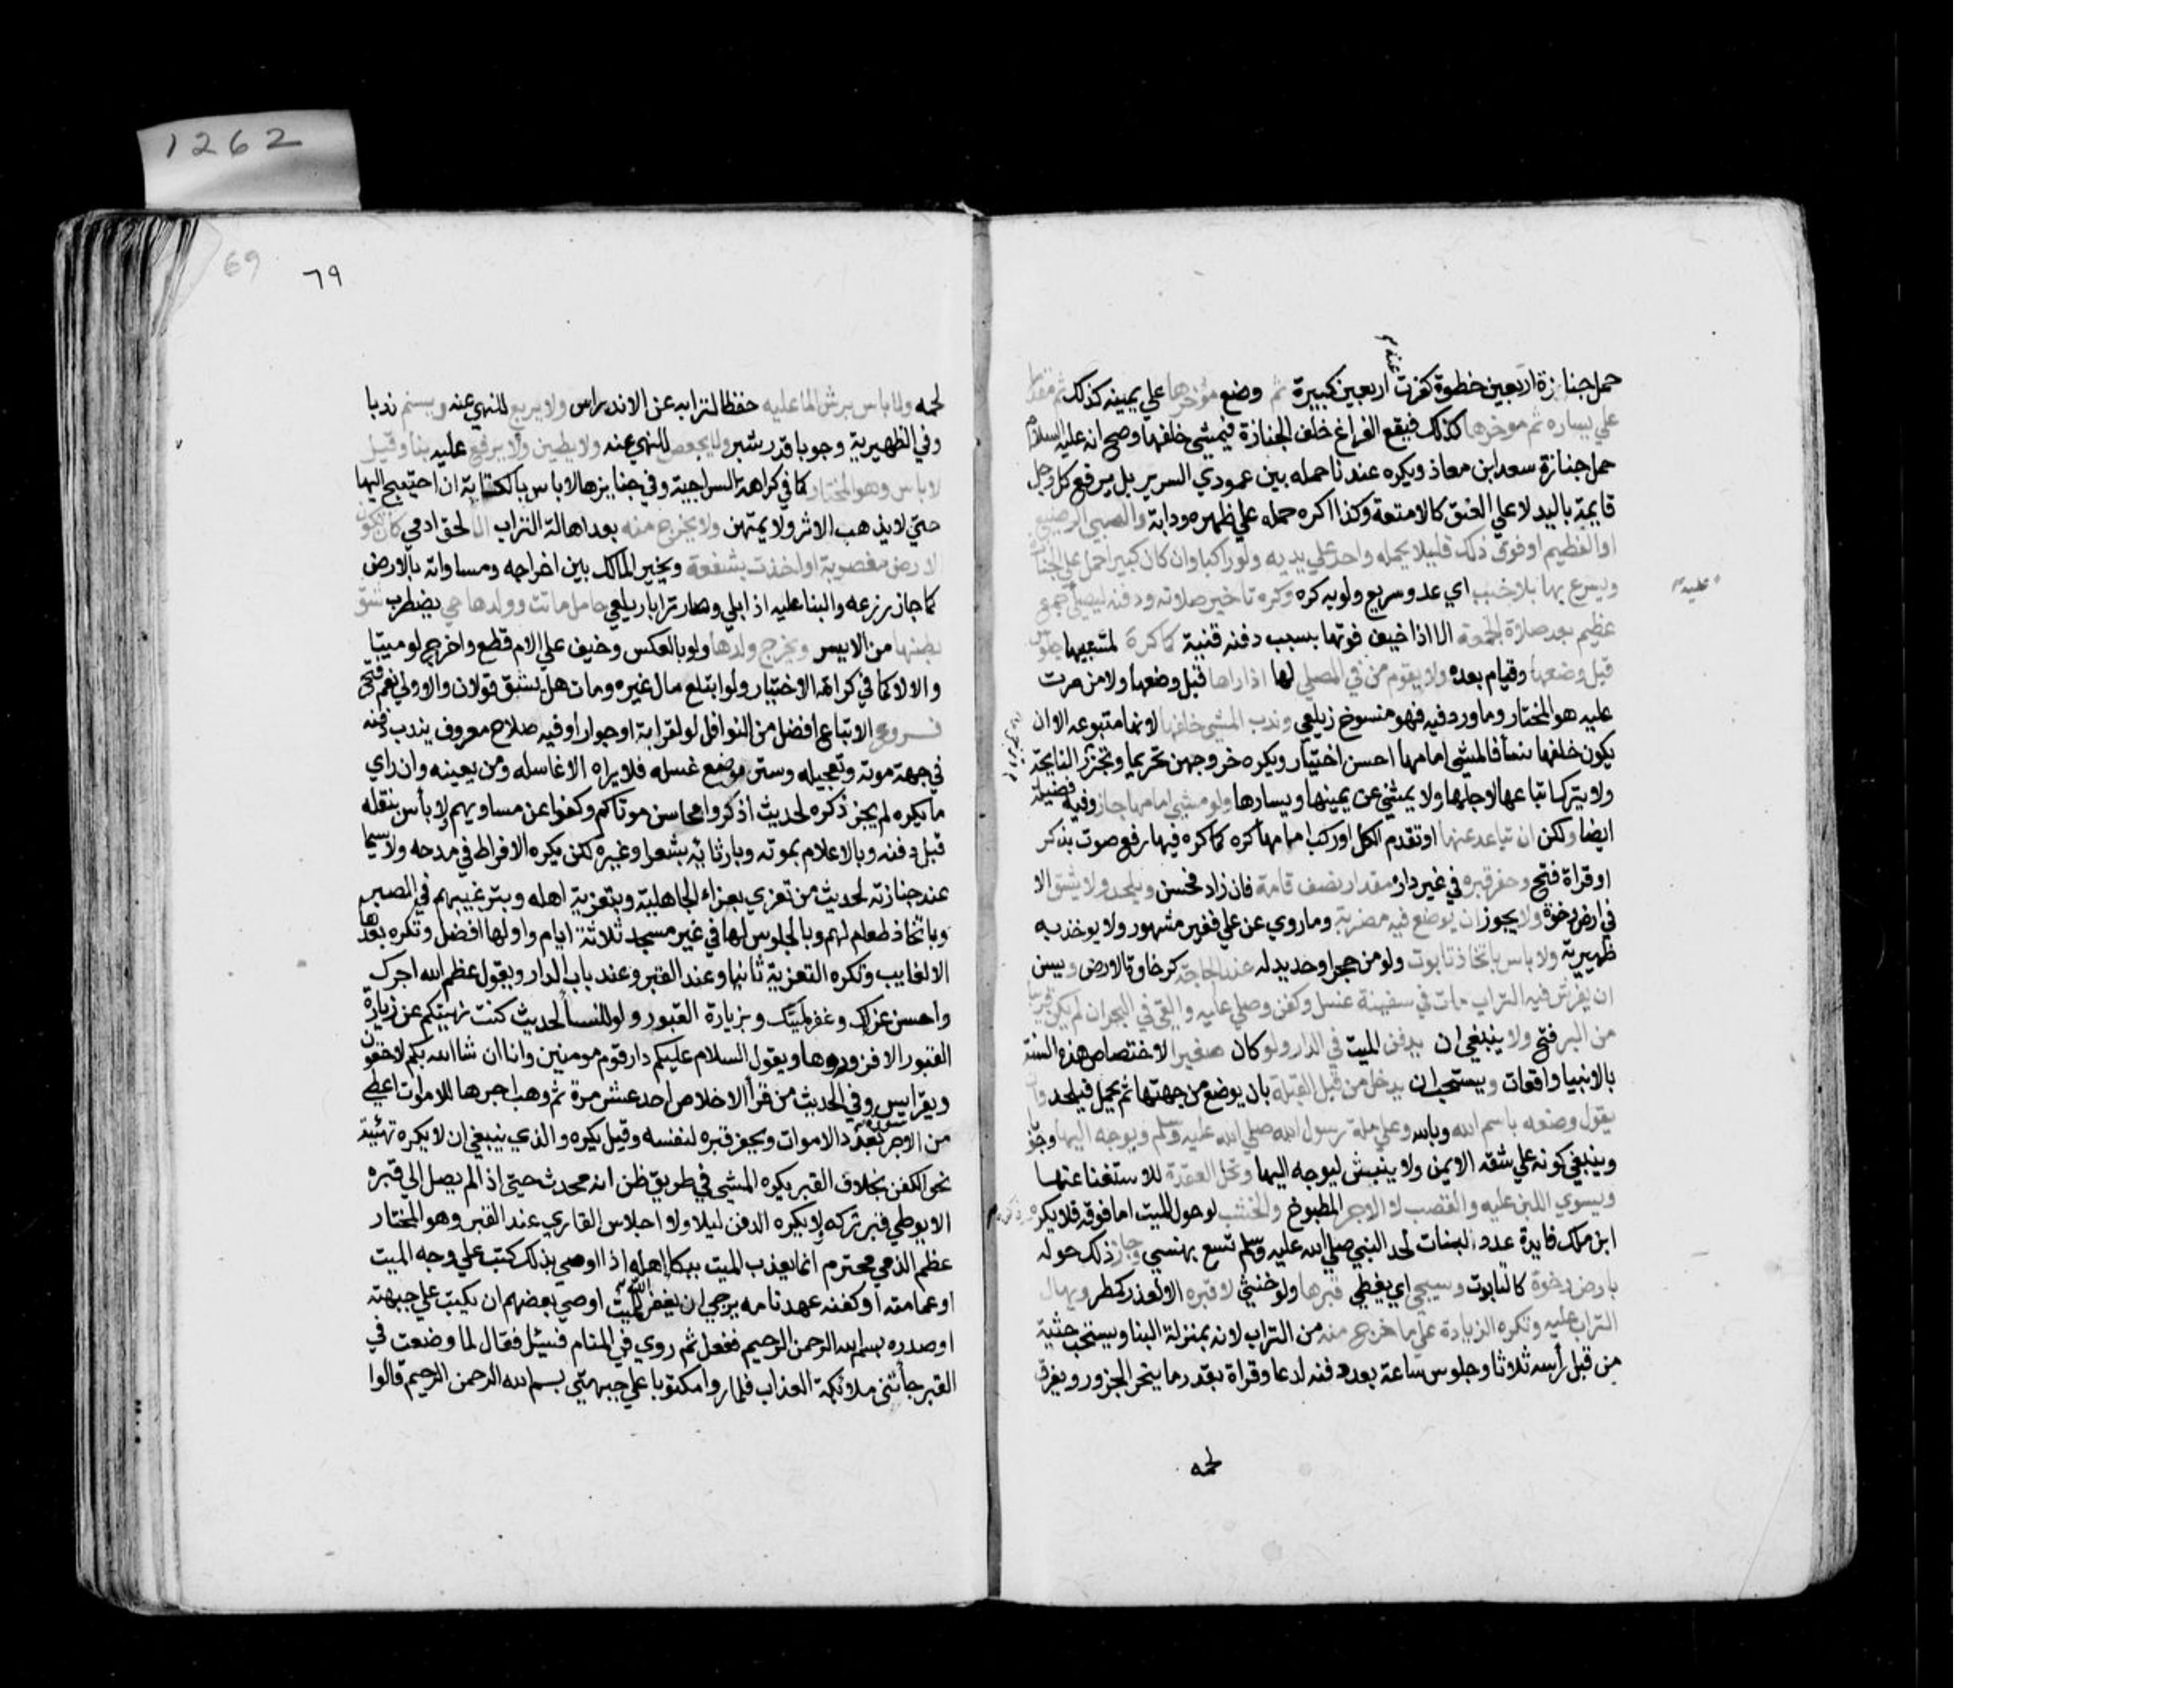 حمل جنازة اربعين خطوة كفرت عنه اربعين كبيرة ثم وضع مؤخرها علي يمينه كذلك ثم مقدمها
علي يساره ثم موخرها كذلك فيقع الفراغ خلف الجنازة فيمشي خلفها وصح انه عليه السلام
حمل جنازة سعد ابن معاذ ويكره عندنا حمله بين عمودي السرير بل يرفع كل رجل
قايمة باليد لا علي العنق كالامتعة وكذا اكره حمله علي ظهره ودابة والصبي الرضيع
او الفطيم او فوق ذلك قليلا يحمله واحد علي يديه ولو راكبا وان كان كبيرا حمل علي الجنازة
ويسرع بها بلا خبب اي عدو سريع ولو به كره وكره تاخير صلاته ودفنه ليصلي عليه جمع
عظيم بعد صلاة الجمعة الا اذا خيف فوتها بسبب دفنه قنية كما كره لمتبعيها جلوس
قبل وضعها وقيام بعده ولا يقوم من في المصلي لها اذا راها قبل وضعها ولا من مرت
عليه هو المختار وما ورد فيه فهو منسوخ زيلعي وندب المشي خلفها لانها متبوعه الا ان
يكون خلفها نسأ فالمشي امامها احسن اختيار ويكره خروجهن تحريما وتزجر النايحة
ولا يترك اتباعها لاجلها ولا يمشي عن يمينها ويسارها ولو مشي امامها جاز وفيه فضيلة
ايضا ولكن ان تباعد عنها او تقدم الكل او ركب امامها كره كما كره فيها رفع صوت بذكر
او قراة فتح وحفر قبره في غير دار مقدار نصف قامة فان زاد فحسن ويلحد ولا يشق الا
في ارض رخوة ولا يجوز ان يوضع فيه مضربة وما روي عن علي فغير مشهور ولا يوخذ به
ظهيرية ولا باس باتخاذ تابوت ولو من حجر او حديد له عند الحاجة كرخاوة الارض ويسن
ان يفرش فيه التراب مات في سفينة غسل وكفن وصلي عليه والقي في البحر ان لم يكن قريبا
من البر فتح ولا ينبغي ان يدفن الميت في الدار ولو كان صغيرا لاختصاص هذه السنة
بالانبيا واقعات ويستحب ان يدخل من قبل القبلة بان يوضع من جهتها ثم يحمل فيلحد وان
يقول وضعه باسم الله وبالله وعلي ملة رسول الله صلي الله عليه وسلم ويوجه اليها وجوبا
وينبغي كونه علي شقه الايمن ولا ينبش ليوجه اليها وتحل العقدة للاستغنا عنها
ويسوي اللبن عليه والقصب لا الاجر المطبوخ والخشب لو حول الميت اما فوقه فلا يكره ذكره
ابن ملك فايدة عدد لبنات لحد النبي صلي الله عليه وسلم تسع بهنسي وجاز ذلك حوله
بارض رخوة كالتابوت ويسجي اي يغطي قبرها ولو خنثي لا قبره الا لعذر كمطر ويهال
التراب عليه وتكره الزيادة علي ما خرج منه من التراب لانه بمنزلة البنا ويستحب حثيه
من قبل رأسه ثلاثا وجلوس ساعة بعد دفنه لدعا وقراة بقدر ما ينحر الجزور ويفرق
لحمه
69
٦٩
لحمه ولا باس برش الما عليه حفظا لترابه عن الاندراس ولا يربع للنهي عنه ويسنم ندبا
وفي الظهيرية وجوبا قدر شبر ولا يجصص للنهي عنه ولا يطين ولا يرفع عليه بنا وقيل
لا باس وهو المختار كما في كراهة السراجية وفي جنايزها لا باس بالكتابة ان احتيج اليها
حتي لا يذهب الاثر ولا يمتهن ولا يخرج منه بعد اهالة التراب الا لحق ادمي كان تكون
الارض مغصوبة او اخذت بشفعة ويخير المالك بين اخراجه ومساواته بالارض
كما جاز زرعه والبنا عليه اذا بلي وصار ترابا زيلعي حامل ماتت وولدها حي يضطرب شق
بطنها من الايسر ويخرج ولدها ولو بالعكس وخيف علي الام قطع واخرج لو ميتا
والا لا كما في كراهة الاختيار ولو ابتلع مال غيره ومات هل يشق قولان والاولي نعم فتح
فروع الاتباع افضل من النوافل لو لقرابة او جوار او فيه صلاح معروف يندب دفنه
في جهة موته وتعجيله وستر موضع غسله فلا يراه الا غاسله ومن يعينه وان راي
ما يكره لم يجز ذكره لحديث اذكروا محاسن موتاكم وكفوا عن مساويهم لا بأس بنقله
قبل دفنه وبالاعلام بموته وبارثائه بشعر او غيره لكن يكره الافراط في مدحه ولا سيما
عند جنازته لحديث من تعزي بعزاء الجاهلية وبتعزية اهله وبترغيبهم في الصبر
وباتخاذ طعام لهم وبالجلوس لها في غير مسجد ثلاثة ايام واولها افضل وتكره بعدها
الا لغايب وتكره التعزية ثانيا وعند القبر وعند باب الدار ويقول عظم الله اجرك
واحسن عزاك وغفر لميتك وبزيارة القبور ولو للنسأ لحديث كنت نهيتكم عن زيارة
القبور الا فزوروها ويقول السلام عليكم دار قوم مومنين وانا ان شا الله بكم لاحقون
ويقرا يس وفي الحديث من قرأ الاخلاص احد عشر مرة ثم وهب اجرها للاموات اعطي
من الاجر بعدد الاموات ويحفر قبره لنفسه وقيل يكره والذي ينبغي ان لا يكره تهيئة
نحو الكفن بخلاف القبر يكره المشي في طريق ظن انه محدث حتي اذا لم يصل الي قبره
الا بوطي قبر تركه لا يكره الدفن ليلا ولا اجلاس القاري عند القبر وهو المختار
عظم الذمي محترم انما يعذب الميت ببكا اهله اذا اوصي بذلك كتب علي وجه الميت
او عمامته أو كفنه عهد نامه يرجي ان يغفر الله للميت اوصي بعضهم ان يكتب علي جبهته
او صدره بسم الله الرحمن الرحيم ففعل ثم روي في المنام فسيل فقال لما وضعت في
القبر جأتني ملائكة العذاب فلما راوا مكتوبا علي جبهتي بسم الله الرحمن الرحيم قالوا
1262